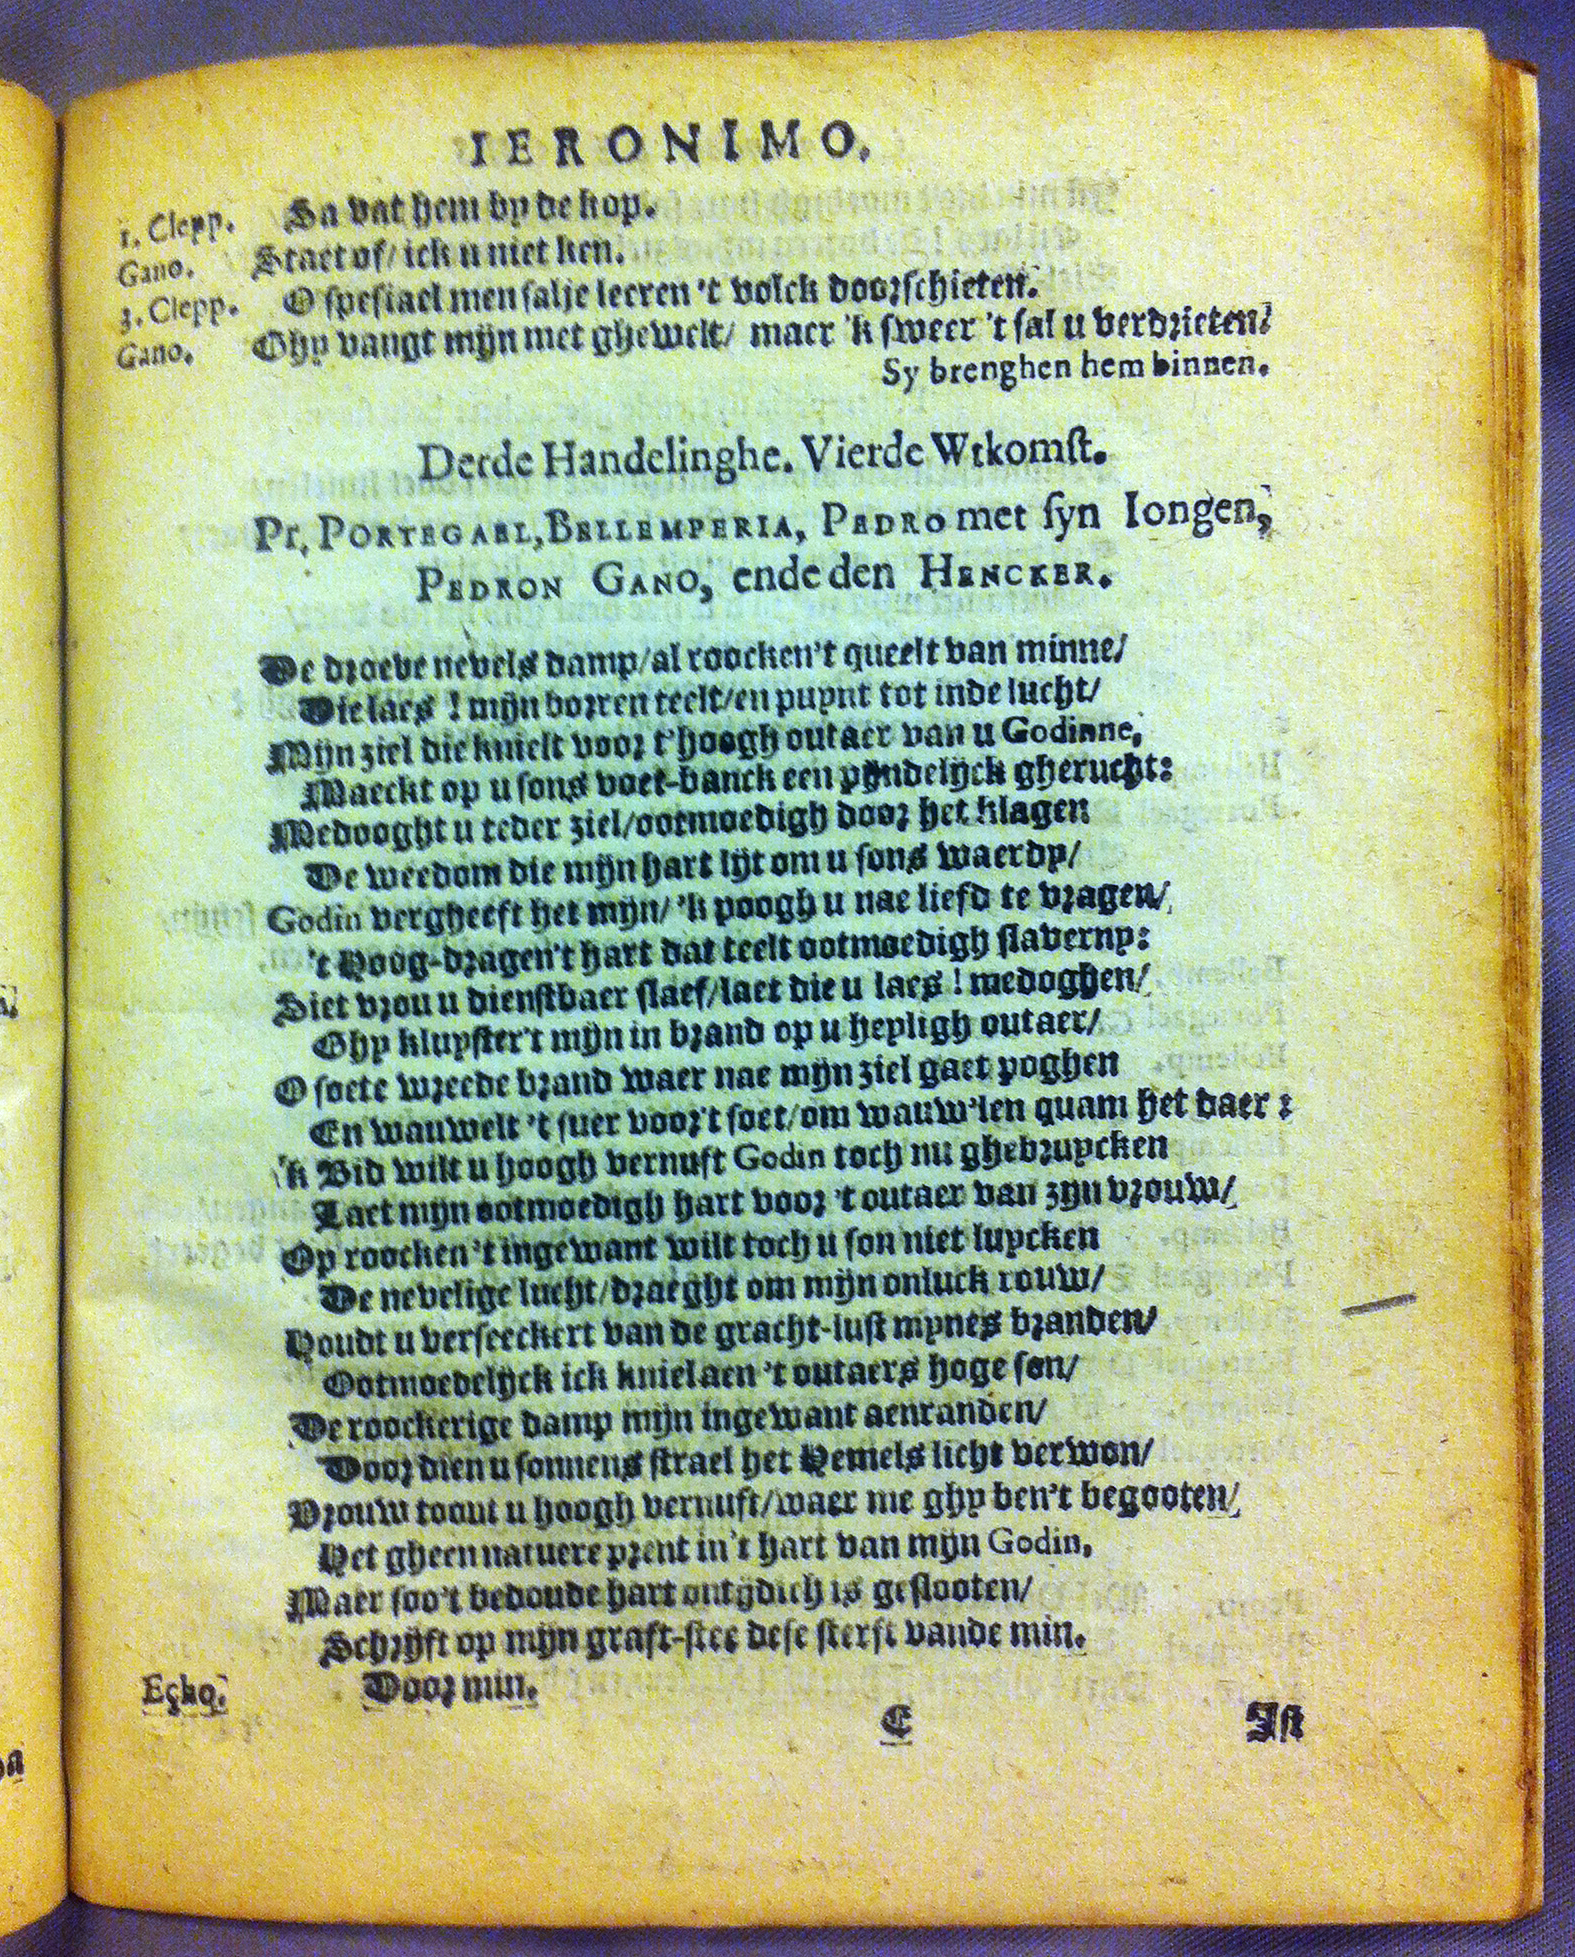 IERONIMO.
1. Clepp. Sa vat hem by de kop.
Gano. Staet of/ ick u niet ken.
3. Clepp. O spesiael men salje leeren 't volck doorschieten.
Gano. Ghy vangt mijn met ghewelt/ maer 'k sweer 't sal u verdrieten.
Sy brenghen hem binnen.
Derde Handelinghe. Vierde Wtkomst.
Pr. PORTEGAEL, BELLEMPERIA, PEDRO met syn Iongen,
PEDRON GANO, ende den HENCKER.
De droeve nevels damp/al roocken't queelt van minne/
Die laes ! mijn dorren teelt/en puynt tot inde lucht/
Mijn ziel die knielt voor t'hoogh outaer van u Godinne,
Maeckt op u sons voet-banck een pijndelijck gherucht:
Medooght u teder ziel/ootmoedigh door het klagen
De weedom die mijn hart lijt om u sons waerdy/
Godin vergheeft het mijn/ 'k poogh u nae liefd te vragen/
't Hoog-dragen't hart dat teelt ootmoedigh slaverny:
Siet vrou u dienstbaer slaef/laet die u laes ! medoghen/
Ghy kluyster't mijn in brand op u heyligh outaer/
O soete wreede brand waer nae mijn ziel gaet poghen
En wauwelt 't suer voor't soet/om wauw'len quam het daer :
'k Bid wilt u hoogh vernuft Godin toch nu ghebruycken
Laet mijn ootmoedigh hart voor 't outaer van zijn vrouw/
Op roocken't ingewant wilt toch u son niet luycken
De nevelige lucht/draeght om mijn onluck rouw/
Houdt u verseeckert van de gracht-lust mynes branden/
Ootmoedelijck ick kniel aen 't outaers hoge son/
De roockerige damp mijn ingewant aenranden/
Door dien u sonnens strael het Hemels licht verwon/
Vrouw toont u hoogh vernuft/waer me ghy ben't begooten/
Het gheen natuere prent in't hart van mijn Godin,
Maer soo't bedoude hart ontijdich is geslooten/
Schrijft op mijn graft-stee dese sterst vande min.
Echo. Door min.
C Ist